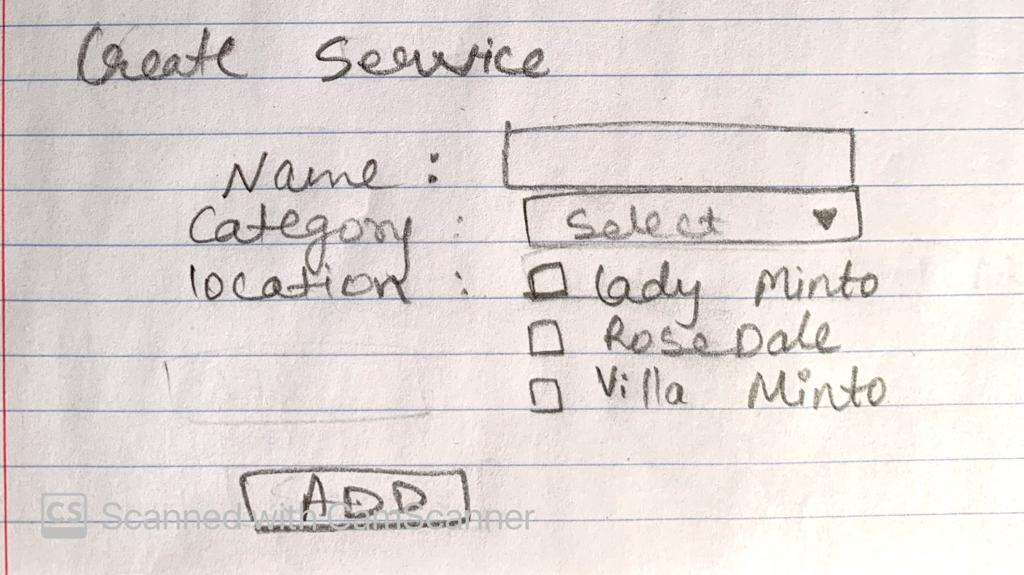 Create Service
Name :
Category : Select
location : Lady Minto
Rose Dale
Villa Minto
ADD
CS Scanned with CamScanner